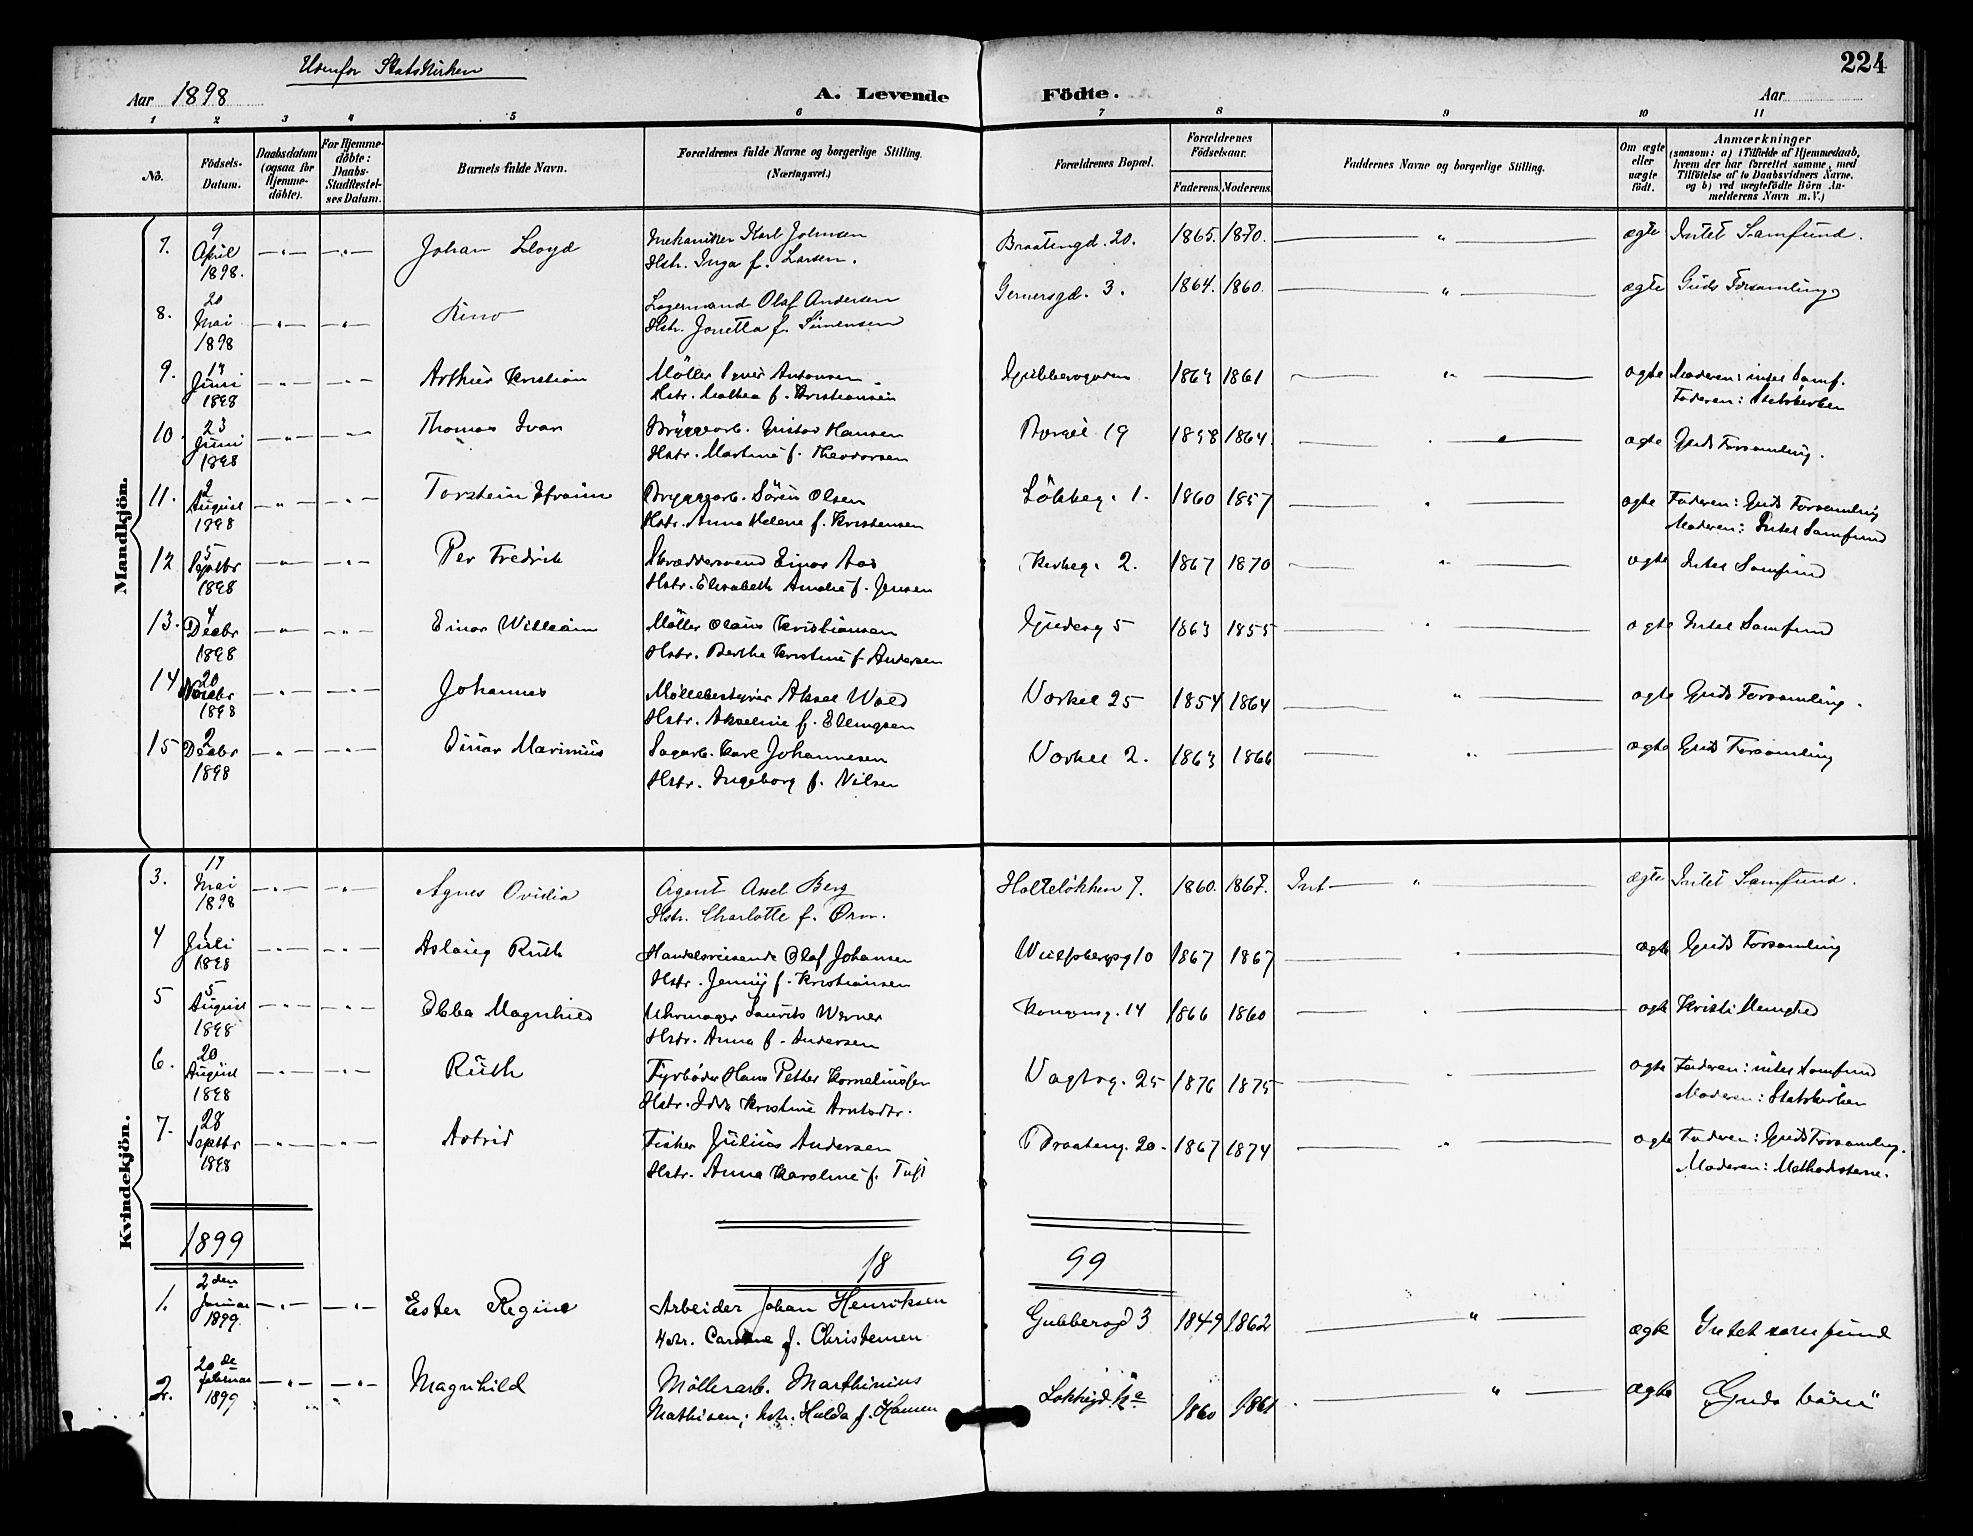 Udenfor Statskirken
224
Aar 1898
A. Levende Födte.
Aar
1 2 3 4 5 6 7 8 9 10 11
No.
Födsels-Datum.
Daabsdatum (ogsaa for Hjemme-döbte).
For Hjemme-döbte: Daabs-Stadfæstel-ses Datum.
Barnets fulde Navn.
Forældrenes fulde Navne og borgerlige Stilling. (Næringsvei.)
Forældrenes Bopæl.
Forældrenes Födselsaar.
Faderens. Moderens.
Faddernes Navne og borgerlige Stilling.
Om ægte eller uægte födt.
Anmærkninger
(saasom: a) i Tilfælde af Hjemmedaab, hvem der har forrettet samme, med Tilföielse af to Daabsvidners Navne, og b) ved uægtefödte Börn An-melderens Navn m. V.)
Mandkjön.
7. 9 April 1898. Johan Lloyd Mekaniker Karl Johnsen Braatengd. 20. 1865. 1870. ægte Intet Samfund.
Hstr. Inga f. Larsen.
8. 20 Mai 1898 Lagermand Olaf Andersen 3. 1864. 1860. ægte Guds Forsamling
Hstr. Jonetta f. Simensen
9. 17 Juni 1898 Arthur Kristian Möller Antonsen Gubberogaden 1863 1861 ægte Moderen: intet Samf.
Hstr. Mathea f. Kristiansen Faderen: Statskirken
10. 23 Juni 1898 Thomas Ivar Bryggearb. Gustav Hansen 19 1864. ægte Guds Forsamling.
Hstr. Martine f. Theodorsen
11. 2 August 1898 Torstein Efraim Bryggearb. Sörin Olsen Lökkeg. 1. 1860 1857 ægte Faderen: Guds Forsamling
Hstr. Anna Helene f. Kristensen Moderen: Intet Samfund
12 5 Septbr 1898 Per Fredrik Skræddersvend Einar Aas Kirkeg. 2. 1867 1870 ægte Intet Samfund
Hstr. Elisabeth Amalie f. Jensen
13. 4 Decbr 1898 Einar William Möller Olaus Kristiansen 5 1863 1855 ægte Intet Samfund
Hstr. Berthe Kristine f. Andersen
14 20 Novbr 1898 Johannes Möllebestyrer Aksel Wold 25 1854 1864 ægte Guds Forsamling.
Hstr. Akseline f. Ellingsen
15 2 Decbr 1898 Einar Marinius Sagarb. Karl Johannesen 2. 1863 1866 ægte Guds Forsamling
Hstr. Ingeborg f. Nilsen
Kvindekjön.
3. 17 Mai 1898 Agnes Ovidia Agent Axel Berg Holtelökken 7. 1860. 1867. Int ægte Intet Samfund.
Hstr. Charlotte f. Orm.
4 1 Juli 1898 Aslaug Ruth Handelsreisende Olaf Johansen Wulfsbergsg 10 1867 1867 ægte Guds Forsamling
Hstr. Jenny f. Kristiansen
5 5 August 1898 Ebba Magnhild Uhrmager Laurits Werner Kongensg. 14 1866 1860 ægte Kristi Menighed
Hstr. Anna f. Andersen
6. 20 August 1898 Ruth Fyrböder Hans Petter Korneliussen 25 1876 1875 ægte Faderen: intet Samfund
Hstr. Ida Kristine Arntsdtr. Moderen: Statskirken
7. 28 Septbr 1898 Astrid Fisker Julius Andersen Braateng. 20. 1867 1874 ægte Faderen: Guds Forsamling.
Hstr. Anna Karoline f. Tuft Moderen: Methodisterne.
1899
18 99
1. 2den Januar 1899. Ester Regine Arbeider Johan Henriksen Gubberogd 3 1849 1862 ægte Intet samfund
Hstr. Caroline f. Christensen
2. 20de februar 1899 Magnhild Möllerarb. Marthinius 1860 1861 ægte "Guds börn"
Mathisen; hstr. Hulda f. Hansen